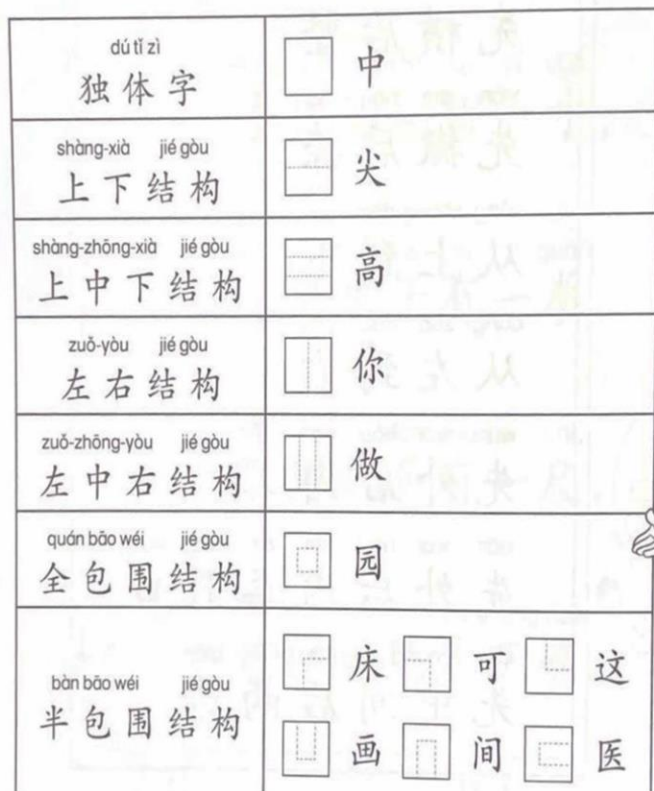 dú tǐ zì
独体字
中
shàng-xià jié gòu
上下结构
尖
shàng-zhōng-xià jié gòu
上中下结构
高
zuǒ-yòu jié gòu
左右结构
你
zuǒ-zhōng-yòu jié gòu
左中右结构
做
quán bāo wéi jié gòu
全包围结构
园
bàn bāo wéi jié gòu
半包围结构
床 可 这
画 间 医